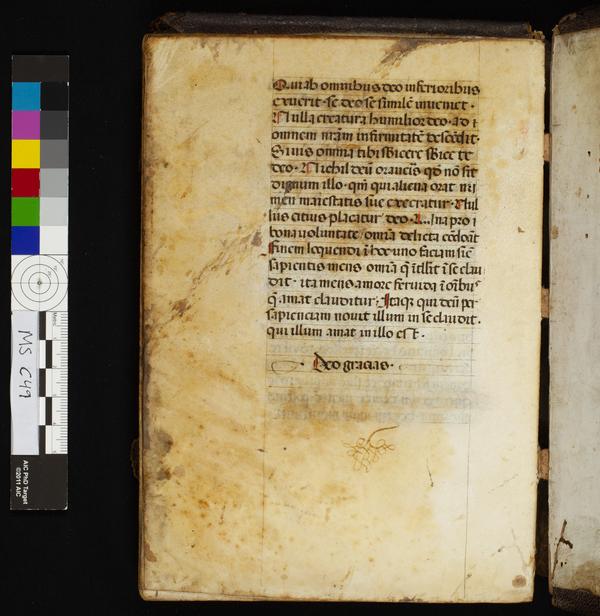 Qui ab omnibus deo inferioribus
exuerit. se deo se similē inueniet.
Nulla creatura humilior deo. ad i
omnem nr̄am infirmitatē descēdit.
Si uis omnia tibi sbicere sbice te
deo. Nichil deū orauēis qd nō sit
dignum illo. qm̄ qui aliena orat in
men maiestatis sue execratur. Nul
lus citius placatur deo. na pro i
bona uoluntate omnīa delicta cōdōat
finem loquendi ī hoc uno faciam sic
sapientis mens omnīa q̄ ītllit ī se clau
dit. ita mens amore feruida ī oībus
q̄ amat clauditur. Itaq̄ qui deū per
sapienciam nouit illum in se claudit.
qui illum amat in illo est.
Deo gracias.
MS C49
AIC PhD Target
©2011 AIC